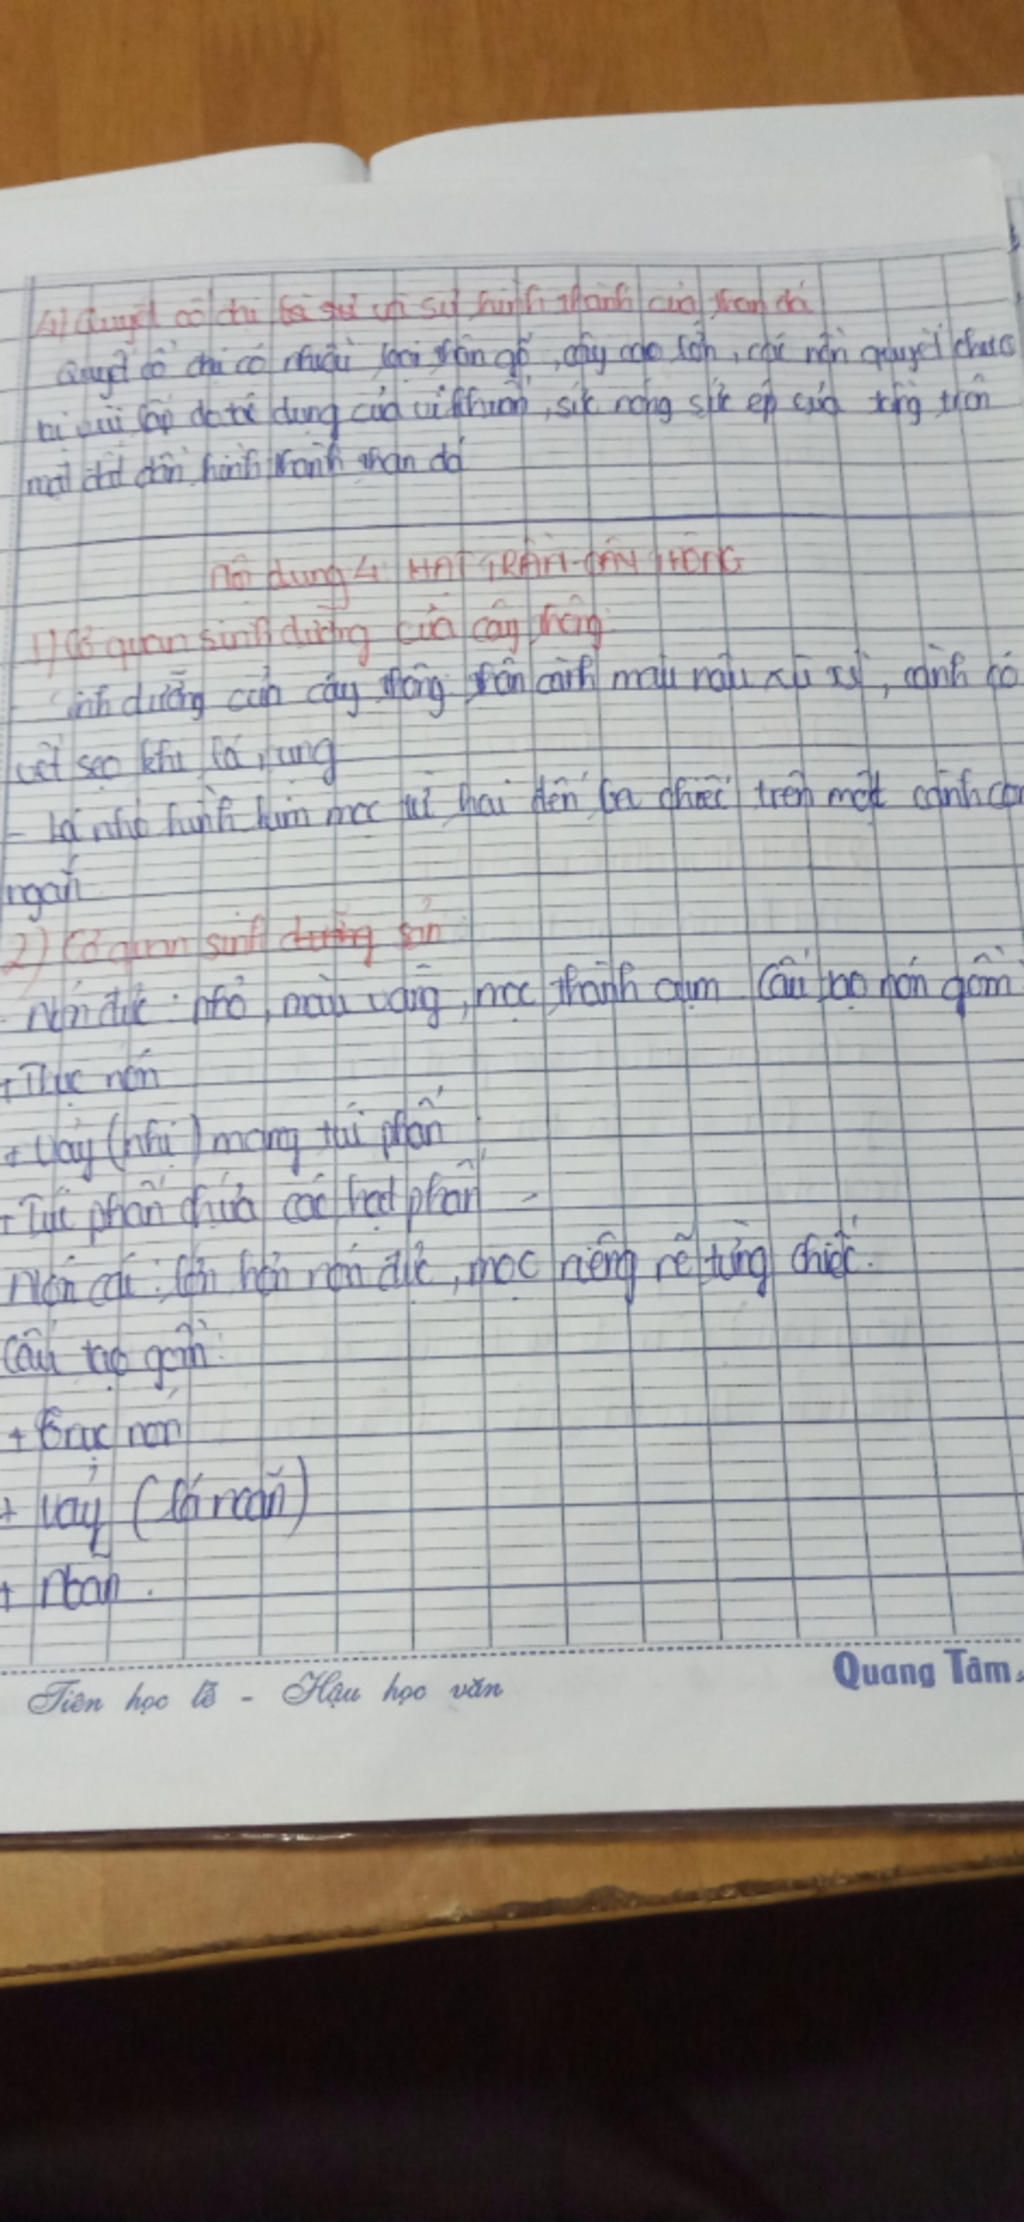 4) Quyết cổ đại và sự hình thành của than đá
Quyết cổ đại có nhiều loài thân gỗ, cây cao lớn, các rừng quyết
bị vùi lấp do tác dụng của vi khuẩn, sức nóng sức ép của tầng trên
mặt đất dần hình thành than đá
Nội dung 4 HẠT TRẦN - CÂY THÔNG
1) Cơ quan sinh dưỡng của cây thông
dưỡng của cây thông: thân cành màu nâu xù xì, cành có
vết sẹo khi lá rụng
- Lá nhỏ hình kim mọc từ hai đến ba chiếc trên một cành con
ngắn
2) Cơ quan sinh dưỡng sản
- Nón đực: nhỏ, màu vàng, mọc thành cụm Cấu tạo nón gồm
+ Trục nón
+ Vảy (nhị) mang túi phấn
+ Túi phấn chứa các hạt phấn -
Nón cái: lớn hơn nón đực, mọc riêng rẽ từng chiếc.
Cấu tạo gồm:
+ trục nón
+ vảy (lá noãn)
+ noãn.
Tiên học lễ - Hậu học văn
Quang Tâm